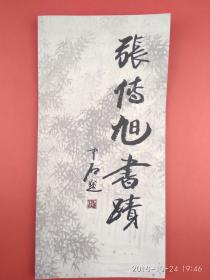 張傳旭書蹟
中石題
2019-10-24 19:46